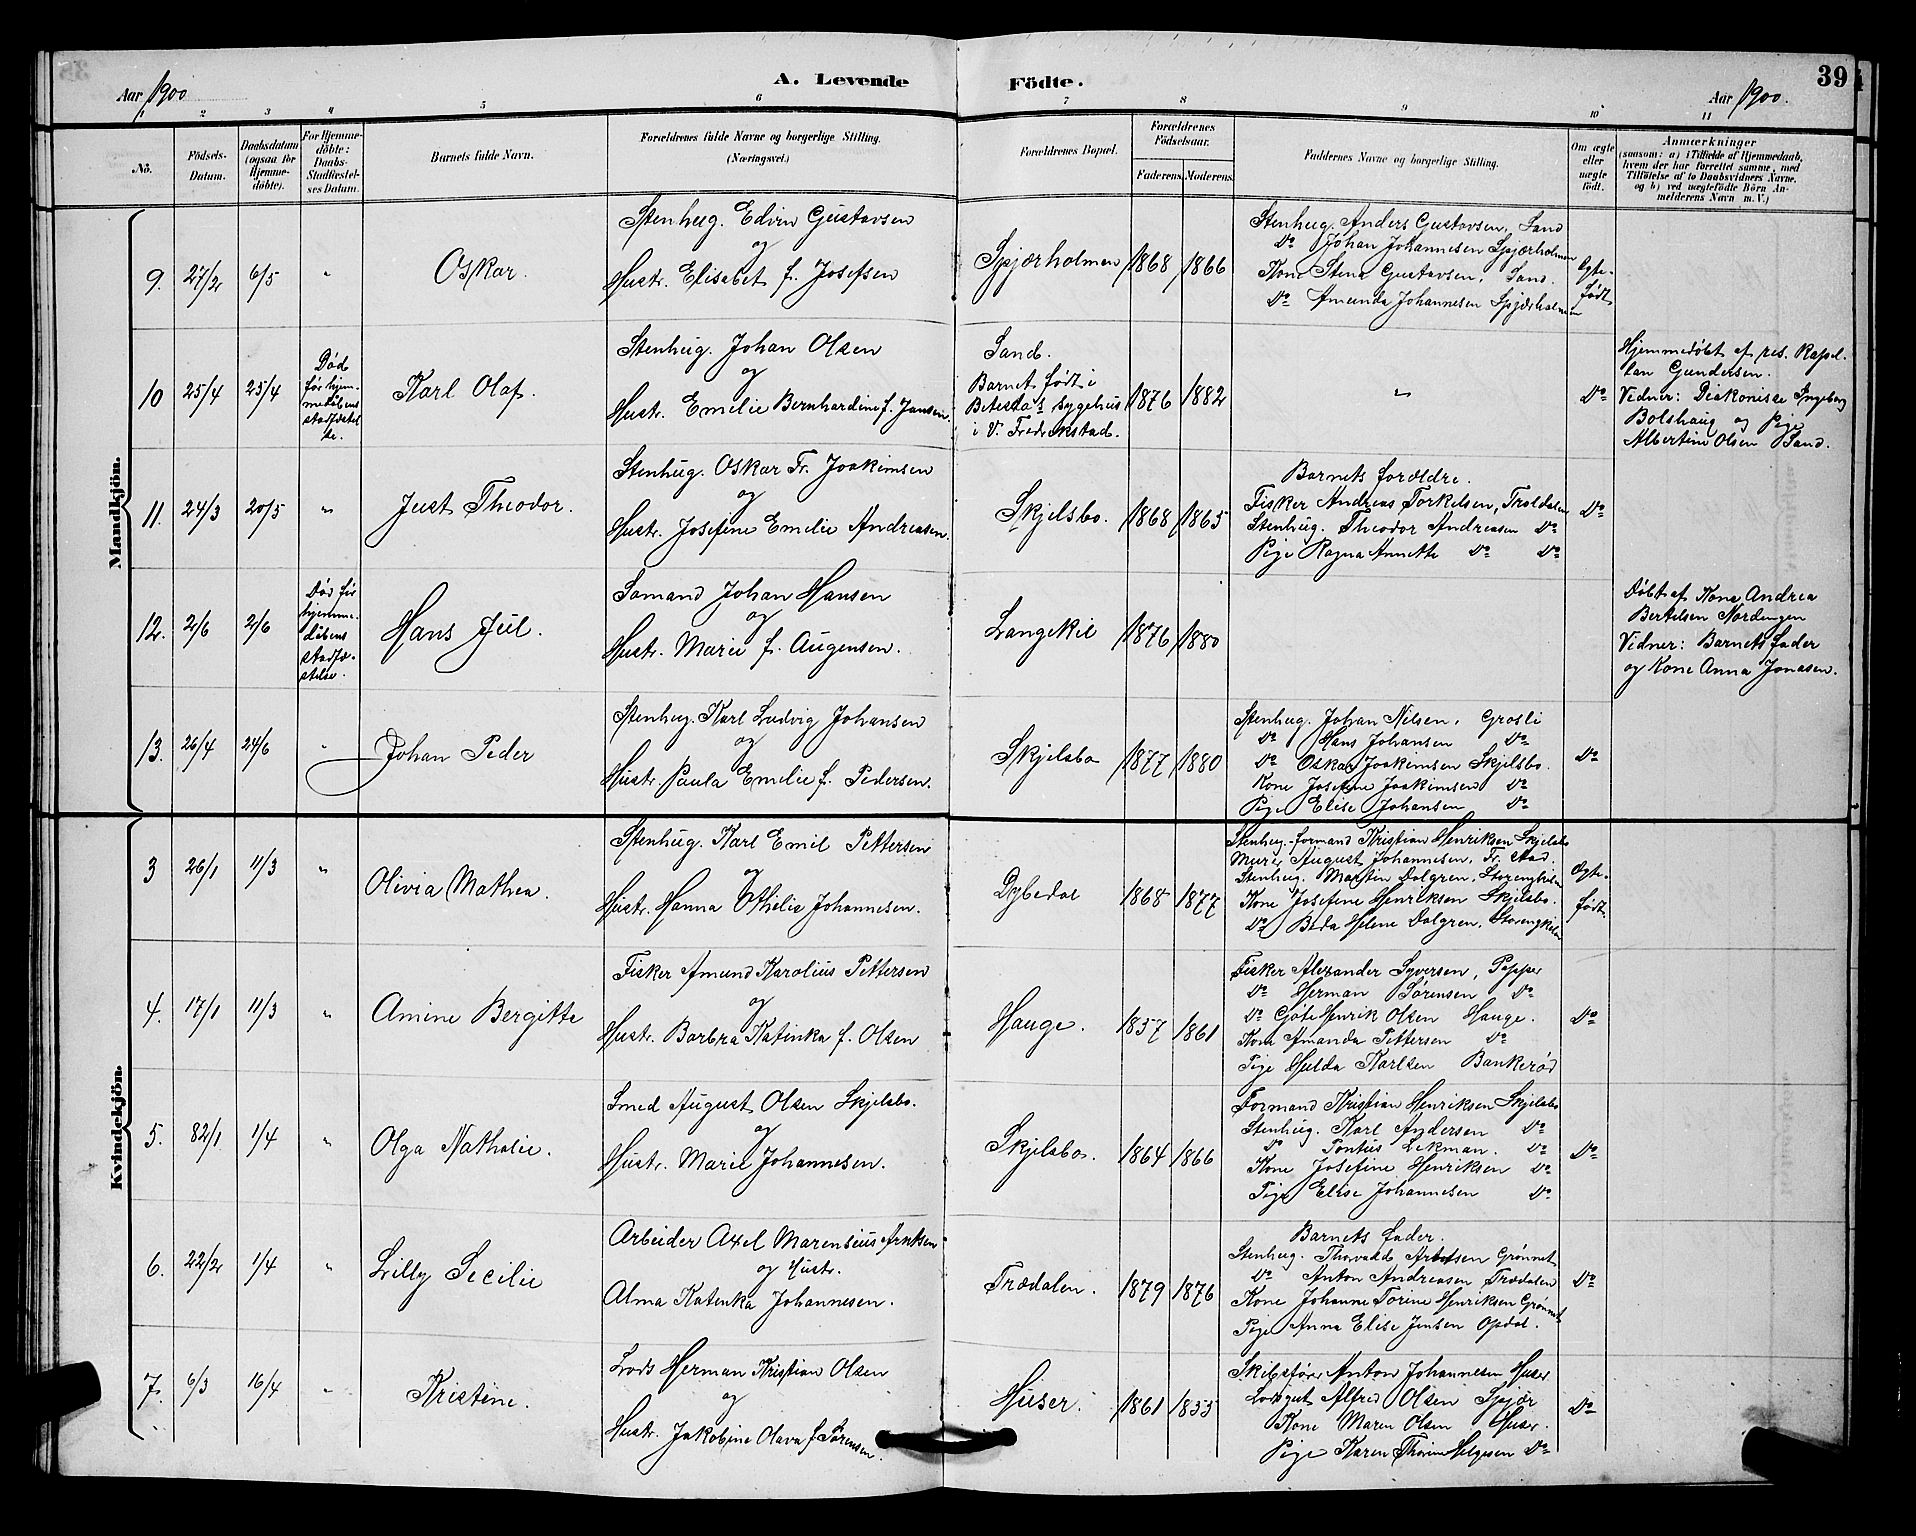 A. Levende Födte.
39
Aar 1900
Aar 1900.
1 2 3 4 5 6 7 8 9 10 11
No.
Födsels-Datum.
Daabsdatum (ogsaa for Hjemmedöbte).
For Hjemmedöbte: Daabs-Stadfæstelses Datum.
Barnets fulde Navn.
Forældrenes fulde Navne og borgerlige Stilling. (Næringsvei.)
Forældrenes Bopæl.
Forældrenes Födselsaar.
Faderens.
Moderens.
Faddernes Navne og borgerlige Stilling.
Om ægte eller uægte födt.
Anmærkninger
(saasom: a) i Tilfælde af Hjemmedaab, hvem der har forrettet samme, med Tilföielse af to Daabsvidners Navne. og b) ved uægtefödte Börn Anmelderens Navn m. V.)
Mandkjön.
9. 27/2 6/5 "
Oskar.
Stenhug. Edvin Gustavsen
og
Hustr. Elisabet f. Josefsen
Spjærholmen 1868 1866
Stenhug. Anders Gustavsen, Sand
Do Johan Johannesen Spjærholmen
Kone Stena Gustavsen, Sand.
Do Amunda Johannesen Spjærholmen
Ægte-født
10 25/4 25/4
Død før hjemmedåbens stadfæstelse.
Karl Olaf.
Stenhug. Johan Olsen
og
Hustr. Emelie Bernhardine f. Jansen.
Sand.
Barnet født i
Betesda's sygehus
i V. Fredrikstad.
1876 1882
"
Do
Hjemmedøbt af res. Kapel-
lan Gundersen.
Vidner: Diakonisse Ingeborg
Bolshaug og Pige
Albertine Olsen Sand.
11. 24/3 20/5 "
Just Theodor.
Stenhug. Oskar Fr. Joakimsen
og
Hustr. Josefine Emelie Andreasen.
Skjelsbo. 1868 1865
Barnets forældre.
Fisker Andreas Torkelsen, Troldalen
Stenhug. Theodor Andreasen Do
Pige Ragna Annette Do Do
Do
12. 2/6 2/6
Død før hjemmedåbens stadfæstelse.
Hans Jul.
Sømand Johan Hansen
og
Hustr. Marie f. Augensen.
Langekil 1876 1880
Døbt af Kone Andrea
Bertelsen Nordengen
Vidner: Barnets fader
og Kone Anna Jonasen.
13. 26/4 24/6 "
Johan Peder
Stenhug. Karl Ludvig Johansen
og
Hustr. Paula Emelie f. Pedersen.
Skjelsbo 1877 1880
Stenhug. Johan Nilsen, Grosli
Do Hans Johansen Do
Do Oskar Joakimsen Skjelsbo.
Kone Josefine Joakimsen Do
Pige Elise Johansen Do
Do
Kvindekjön.
3 26/1 11/3 "
Olivia Mathea.
Stenhug. Karl Emil Pettersen
og
Hustr. Hanna Othelie Johannesen.
Dybedal 1868 1877
Stenhug.-formand Kristian Henriksen Skjelsbo
Murer August Johannesen, Fr. stad.
Stenhug. Martin Dalgren, Storengkilen
Kone Josefine Henriksen Skjelsbo.
Do Beda Helene Dalgren, Storengkilen
Ægte-født
4. 17/1 11/3 "
Amine Bergitte
Fisker Amund Karolius Pettersen
og
Hustr. Barbra Katinka f. Olsen
Hauge. 1857 1861
Fisker Alexander Syversen, Papper
Do Herman Sørensen Do
Do Gøte Henrik Olsen Hauge.
Kone Amanda Pettersen Do
Pige Hulda Karlsen Bankerød
Do
5. 82/1 1/4 "
Olga Nathalie.
Smed August Olsen Skjelsbo.
og
Hustr. Marie Johannesen.
Skjelsbo. 1864 1866
Formand Kristian Henriksen Skjelsbo
Stenhug. Karl Andersen Do
Do Pontus Lekman. Do
Kone Josefine Henriksen Do
Pige Elise Johannesen Do
Do
6. 22/2 1/4 "
Lilly Secilie
Arbeider Axel Marensius Arntsen
og Hustr.
Alma Katinka Johannesen.
Trædalen. 1879 1876
Barnets fader.
Stenhug. Thorvald Arntsen Grønnet
Do Anton Andreasen Trædalen
Kone Johanne Torine Henriksen Grønnet
Pige Anna Elise Jensen Opdal.
Do
7. 6/3 16/4 "
Kristine.
Lods Herman Kristian Olsen
og
Hustr. Jakobine Olava f. Sørensen.
Huser. 1861 1855
Skibsfører Anton Johannesen Huser
Lodsgut Alfred Olsen Spjær
Kone Maren Olsen Huser.
Pige Karen Thorine Helgesen Do
Do